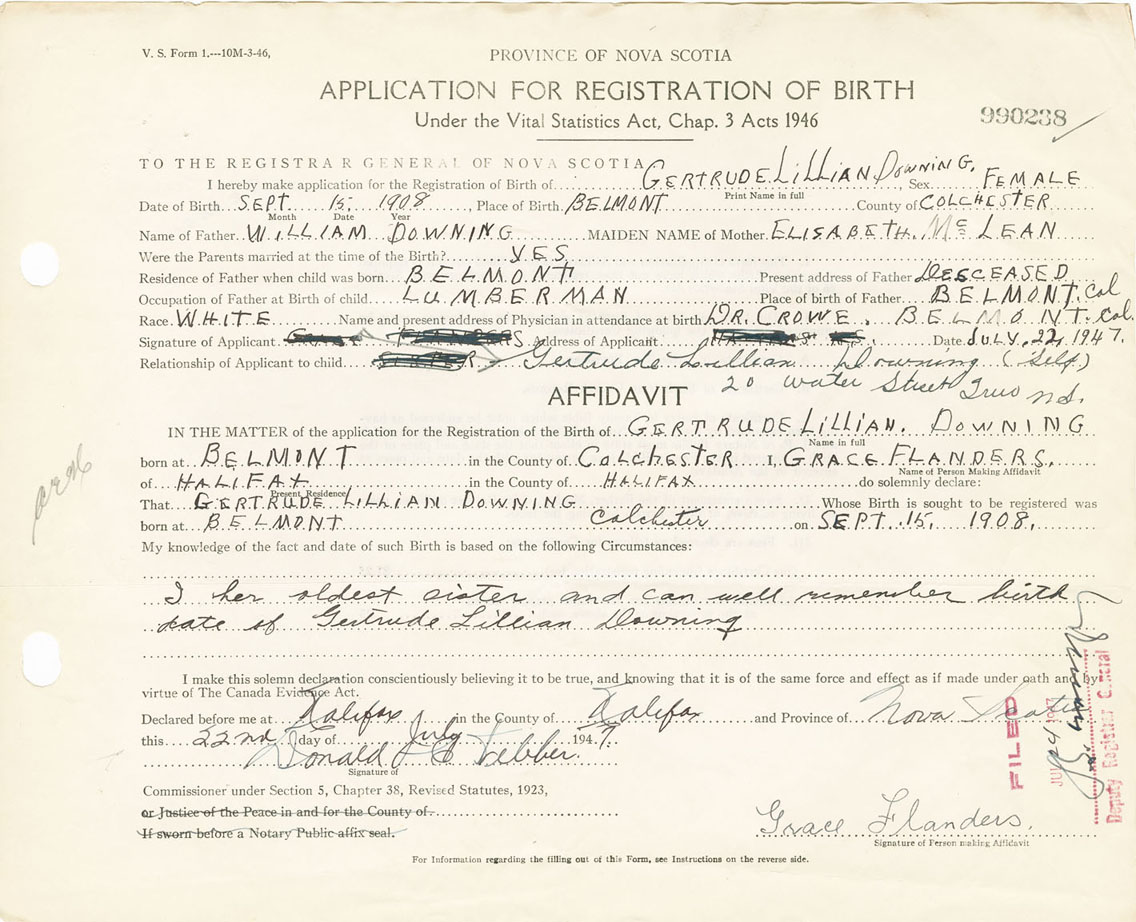 V. S. Form 1.---10M-3-46,
PROVINCE OF NOVA SCOTIA
APPLICATION FOR REGISTRATION OF BIRTH
Under the Vital Statistics Act, Chap. 3 Acts 1946
990238
TO THE REGISTRAR GENERAL OF NOVA SCOTIA
I hereby make application for the Registration of Birth of GERTRUDE LILLIAN DOWNING, Sex FEMALE
Print Name in full
Date of Birth SEPT 15 1908, Place of Birth BELMONT County of COLCHESTER
Month Date Year
Name of Father WILLIAM DOWNING MAIDEN NAME of Mother ELISABETH Mc LEAN
Were the Parents married at the time of the Birth? YES
Residence of Father when child was born BELMONT Present address of Father DESCEASED
Occupation of Father at Birth of child LUMBERMAN Place of birth of Father BELMONT. Col
Race WHITE Name and present address of Physician in attendance at birth DR. CROWE. BELMONT. Col.
Signature of Applicant FLANDERS Address of Applicant Date JULY. 22, 1947.
Relationship of Applicant to child SISTER Gertrude Lillian Downing (Self)
20 Water Street Truro N.S.
AFFIDAVIT
IN THE MATTER of the application for the Registration of the Birth of GERTRUDE LILLIAN. DOWNING
Name in full
born at BELMONT in the County of COLCHESTER I, GRACE FLANDERS.
Name of Person Making Affidavit
of HALIFAX in the County of HALIFAX do solemnly declare:
Present Residence
That GERTRUDE LILLIAN DOWNING Whose Birth is sought to be registered was
born at BELMONT Colchester on SEPT. 15. 1908.
My knowledge of the fact and date of such Birth is based on the following Circumstances:
I her oldest sister and can well remember birth
date of Gertrude Lillian Downing
I make this solemn declaration conscientiously believing it to be true, and knowing that it is of the same force and effect as if made under oath and by
virtue of The Canada Evidence Act.
Declared before me at Halifax in the County of Halifax and Province of Nova Scotia
this 22nd day of July 1947.
Donald Webber
Signature of
Commissioner under Section 5, Chapter 38, Revised Statutes, 1923,
or Justice of the Peace in and for the County of
If sworn before a Notary Public affix seal.
Grace Flanders.
Signature of Person making Affidavit
For Information regarding the filling out of this Form, see Instructions on the reverse side.
FILED
JUL 24 1947
Deputy Registrar General